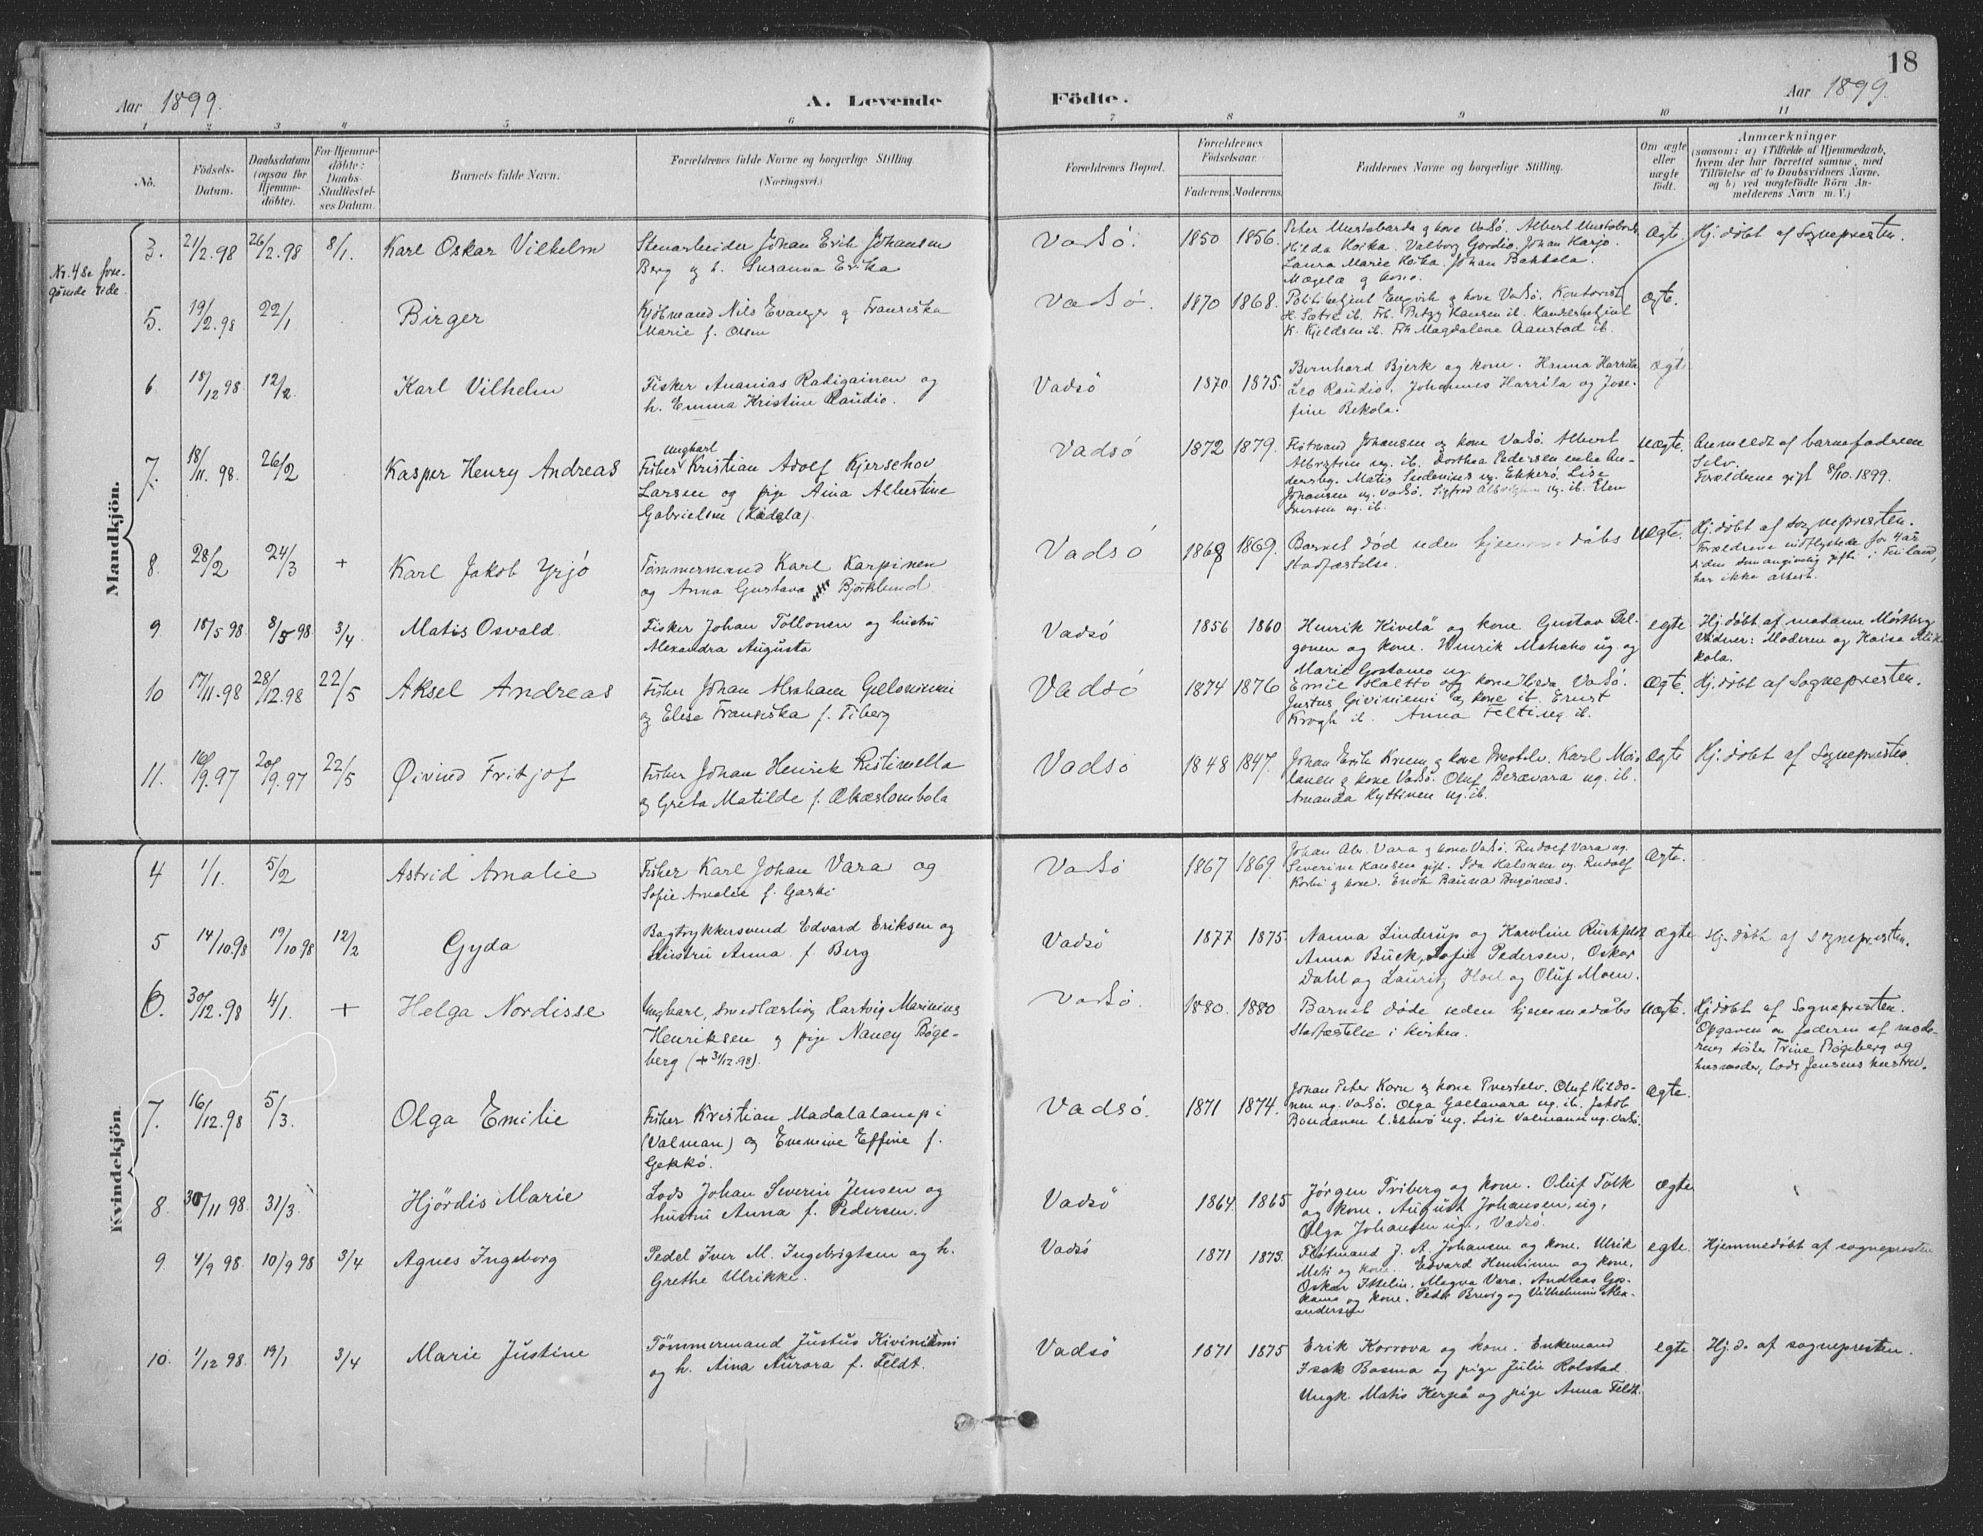 18
Aar 1899.
A. Levende
Födte.
Aar 1899.
1 2 3 4 5 6 7 8 9 10 11
No.
Födsels-
Datum.
Daabsdatum
(ogsaa for
Hjemme-
döbte).
For Hjemme-
döbte:
Daabs-
Stadfæstel-
ses Datum.
Barnets fulde Navn.
Forældrenes fulde Navne og borgerlige Stilling.
(Næringsvei.)
Forældrenes Bopæl.
Forældrenes
Födselsaar.
Faderens. Moderens.
Faddernes Navne og borgerlige Stilling.
Om ægte
eller
uægte
födt.
Anmærkninger
(saasom: a) i Tilfælde af Hjemmedaab,
hvem der har forrettet samme, med
Tilföielse af to Daabsvidners Navne,
og b) ved uægtefödte Börn An-
melderens Navn m. V.)
Mandkjön.
Nr. 4 se fore-
gående side.
3. 21/2.98 26/2.98 8/1. Karl Oskar Vilhelm
Stenarbeider Johan Erik Johansen
Berg og h. Susanna Erika
Vadsö. 1850 1856.
Hilda Koika. Valborg Gordio. Johan Karjo.
Laura Marie Koika. Johan Bakkola.
og kone.
Ægte Hj. døbt af Sognepresten.
5. 19/2.98 22/1 Birger
Kjøbmand Nils Evanger og Fransiska
Marie f. Olsen
Vadsö. 1870 1868.
Politibetjent Engvik og kone Vadsö. Kontorist
H. Sætre ib. Frk. Betzy Hansen ib. Handelsbetjent
K. Kjeldsen ib. Frk Magdalene Aanstad ib.
Ægte.
6. 18/12 98 12/2. Karl Vilhelm
Fisker Ananias Radigainen og
h. Emma Kristine Raudio.
Vadsö 1870 1875.
Bernhard Bjerk og kone. Hanna Harrila
Leo Raudio. Johannes Harrila og Jose-
fine Bekola.
ægte
7. 18/11. 98. 26/2 Kasper Henry Andreas
Ungkarl
Fisker Kristian Adolf Kjerschov
Larsen og pige Aina Albertine
Gabrielsen
Vadsö 1872 1879.
Fløtmand Johansen og kone Vadsö. Albert
ug. ib. Dorthea Pedersen enke An-
dersby. Matis ug. Ekkerö. Lise
Johansen ug. Vadsö. Sigfred ug. ib. Elen
Iversen ug. ib.
Uægte. Anmeldt af barnefaderen
selv.
Forældrene gift 8/10. 1899.
8. 28/2 24/3 + Karl Jakob Yrjö
Tømmermand Karl Karpinen
og Anna Gustava Björklund
Vadsö 1868 1869.
Barnet død uden hjemmedåbs
stadfæstelse.
Uægte. Hj. døbt af Sognepresten.
Forældrene indflyttede for 4 år
siden som angivelig gifte i Finland,
har ikke attest.
9 18/5 98 8/5 98 3/4 Matis Osvald
Fisker Johan Tollonen og hustru
Alexandra Augusta
Vadsö 1856 1860
Henrik Kivelä og kone Gustav Pel-
gonen og kone. Henrik ug. og
Marie ug
egte Hj. døbt af madame Mörtberg
Vidner: Moderen og Kaisa Mik-
kola.
10 17/11.98 28/12.98 22/5 Aksel Andreas
Fisker Johan Abraham
og Elise Fransiska f. Fiberg
Vadsö 1874 1876
Emil Haltto og kone Heda Vadsö.
Justus Giviniemi og kone ib. Ernst
Krogh ib. Anna Felt ug. ib.
Ægte. Hj. døbt af Sognepresten.
11. 16/9.97 20/9.97 22/5 Øivind Fritjof
Fisker Johan Henrik Ristimella
og Greta Matilde f. Akæslombola
Vadsö 1848 1847.
Johan Erik og kone Prestelv. Karl
og kone Vadsö. Oluf Berævara ug. ib.
Amanda Kyttinen ug. ib.
Ægte Hj. døbt af Sognepresten
Kvindekjön.
4 1/1. 5/2 Astrid Amalie
Fisker Karl Johan Vara og
Sofie Amalie f. Garki
Vadsö 1867 1869.
Johan Abr. Vara og kone Vadsö. Rudolf Vara ug.
Severine Hansen gift. Ida Halonen ug. Rudolf
Korbi og kone. Erik Bauna Bugönæs.
Ægte.
5 14/10.98 19/10 98 12/2 Gyda
Bogtrykkersvend Edvard Eriksen og
hustru Anna f. Berg
Vadsö 1877 1875.
Nanna Linderup og Karoline
Anna Buck, Sofie Pedersen, Oskar
Dahl og Lauritz Hoel og Oluf Moen.
ægte Hj. døbt af sognepresten.
6. 30/12.98 4/1. + Helga Nordisse
Ungkarl, smedlærling Hartvig Marinius
Henriksen og pige Nancy Bøge-
berg (+ 31/12.98).
Vadsö. 1880. 1880
Barnet døde uden hjemmedåbs
stadfæstelse i kirken.
Uægte. Hj. døbt af Sognepresten.
Opgaven om faderen af mode-
rens søster Trine Bøgeberg og
husmoder, Lods Jensens hustru.
7. 16/12.98 5/3. Olga Emilie
Fisker Kristian Madalalampi
(Valman) og Evenine Effine f.
Gekkö.
Vadsö. 1871 1874.
Johan Peter Korn og kone Prestelv. Oluf Hildo-
nen ug. Vadsö. Olga Gallavara ug. ib. Jakob
Bondanen l. Ekkerö ug. Lise Valmann ug. Vadsö.
Ægte.
8. 30/11 98 31/3. Hjördis Marie
Lods Johan Severin Jensen og
hustru Anna f. Pedersen.
Vadsö 1864 1865
Jørgen Friberg og kone. Oluf Tolk
og kone. August Johansen, ug,
Olga Johansen ug., Vadsö.
ægte
9. 4/9 98. 10/9 98 3/4 Agnes Ingeborg
Pedel Iver M. Ingebrigtsen og h.
Grethe Ulrikke.
Vadsö 1871 1873.
Fløtmand J. A. Johansen og kone. Ulrik
Meti og kone. Edvard Henriksen og kone.
Oskar Ittelin. Magna Vara. Andreas Gos-
kama og kone. Peder Brevig og Vilhelmine Alex-
andersen
egte. Hjemmedøbt af sognepresten
10. 1/12 98. 19/1 3/4 Marie Justine
Tömmermand Justus Kiviniemi
og h. Aina Aurora f. Feldt.
Vadsö 1871 1875
Erik Korrova og kone. Enkemand
Isak Bosma og pige Julie Rolstad
Ungk. Matis Kerpä og pige Anna Feldt.
egte Hj. d. af sognepresten.